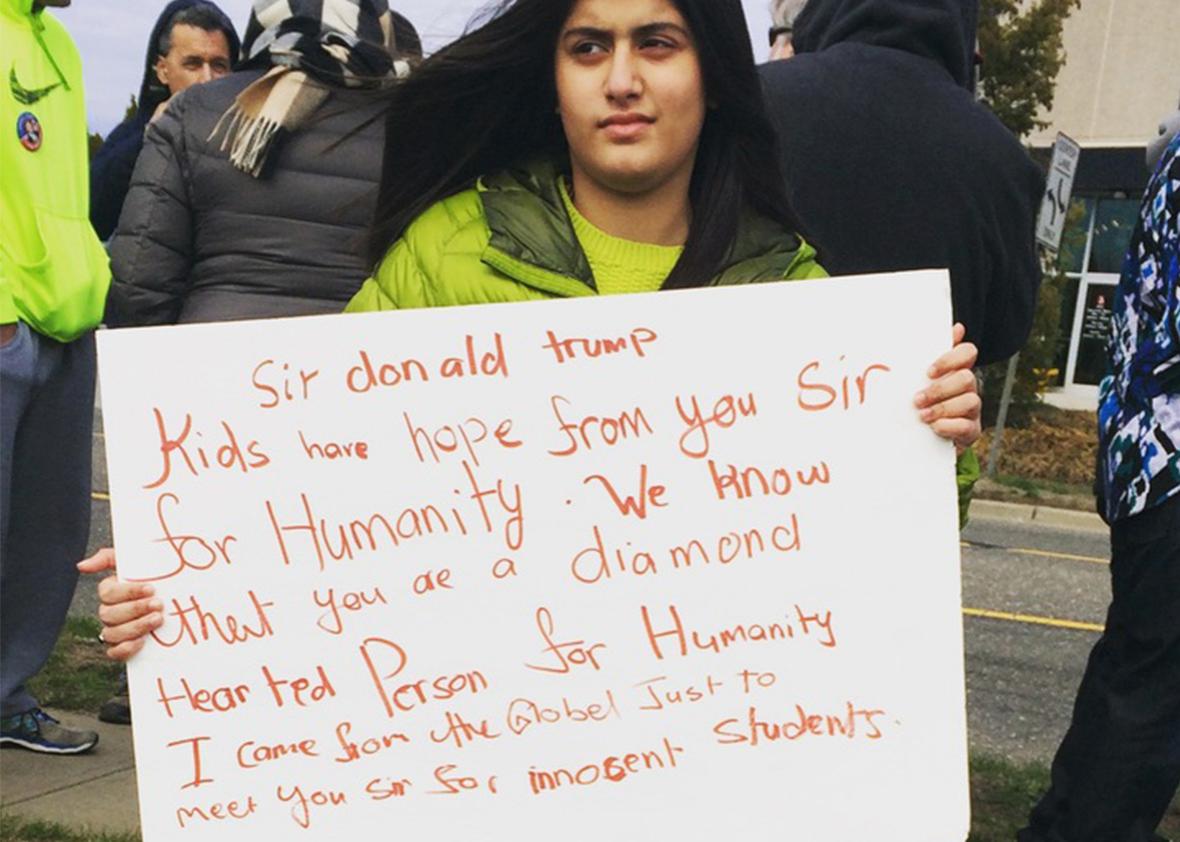 Sir donald trump
Kids have hope from you Sir
for Humanity . We know
that you are a diamond
Hearted Person for Humanity
I came from the Global Just to
meet you sir for innocent students.